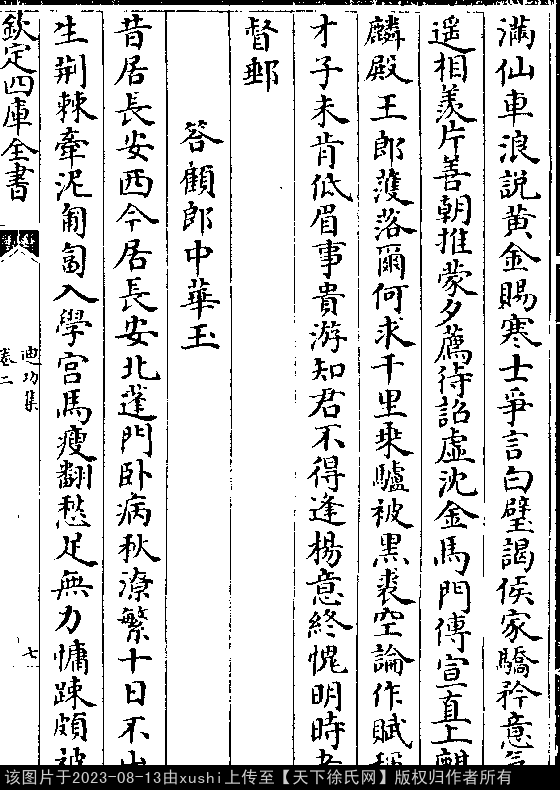 滿仙車浪説黄金賜寒士爭言白璧謁侯家驕矜意氣
遥相羨片善朝推蒙夕薦待詔虚沈金馬門傳宣直上麒
麟殿王郎濩落爾何求千里乘驢被黒裘空論作賦稱
才子未肯低眉事貴游知君不得逢楊意終愧明時
督郵
答顧郎中華玉
昔居長安西今居長安北蓬門卧病秋潦繁十日不出
生荆棘牽泥匍匐入學宫馬瘦翻愁足無力慵踈頗被
欽定四庫全書
迪功集
卷二
七
该图片于2023-08-13由xushi上传至【天下徐氏网】版权归作者所有